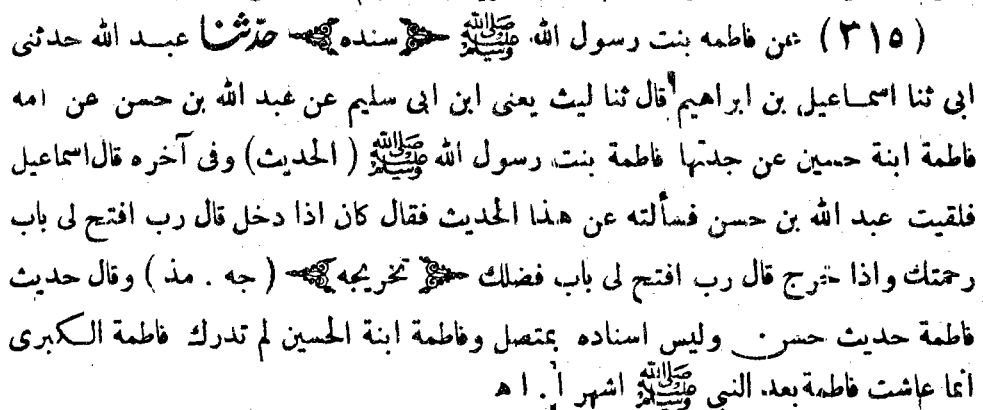 (٣١٥) عن فاطمه بنت رسول الله ﷺ سنده حدّثنا عبد الله حدثنى
ابى ثنا اسماعيل بن ابراهيم قال ثنا ليث يعنى ابن ابى سليم عن عبد الله بن حسن عن امه
فاطمة ابنة حسين عن جدتها فاطمة بنت رسول الله ﷺ (الحديث) وفى آخره قال اسماعيل
فلقيت عبد الله بن حسن فسألته عن هذا الحديث فقال كان اذا دخل قال رب افتح لى باب
رحمتك واذا خرج قال رب افتح لى باب فضلك تخريجه (جه . مذ) وقال حديث
فاطمة حديث حسن وليس اسناده بمتصل وفاطمة ابنة الحسين لم تدرك فاطمة الكبرى
أنما عاشت فاطمة بعد النبي ﷺ اشهر أ . ا ه